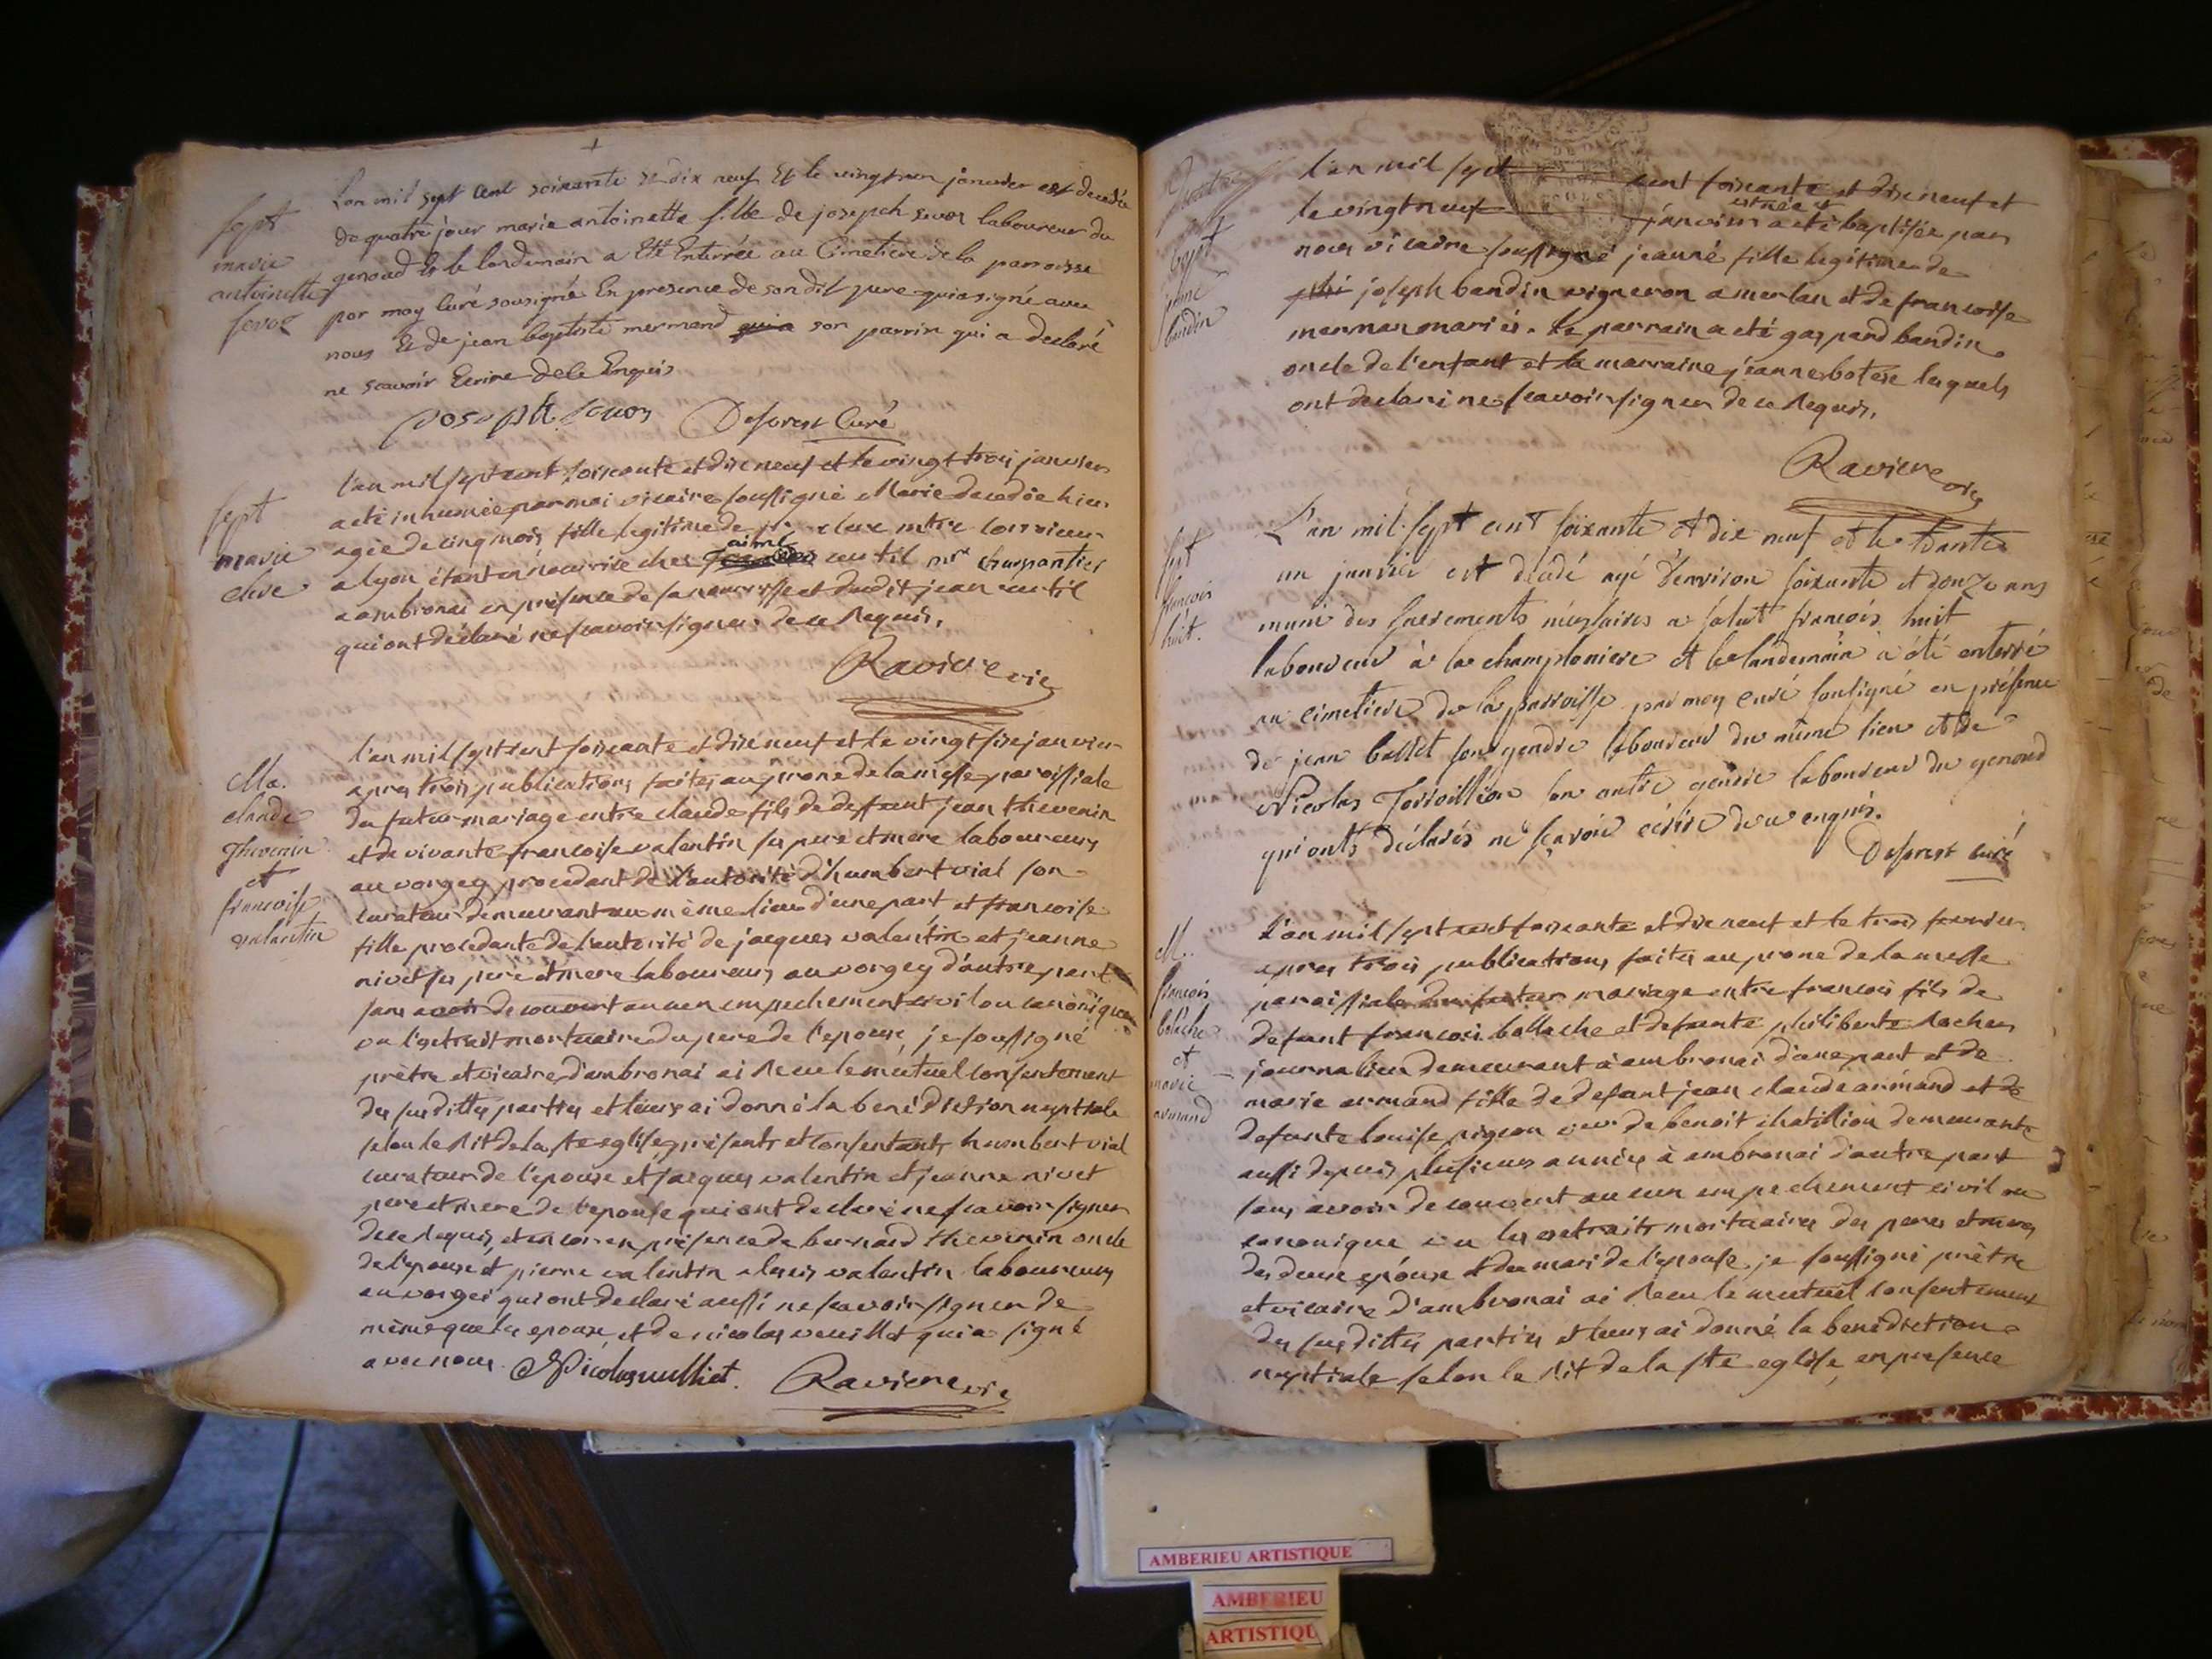 sept
marie
antoinette
sevoz
L'an mil sept cent soixante et dix neuf Et le vingt un janvier est decedée
de quatre jour marie antoinette fille de joseph sevoz laboureur du
genoud et le landemain a Eté Enterrée au Cimetiere de la parroisse
par moy Curé sousigné En presence de son dit pere qui a signé avec
nous Et de jean baptiste mermand son parrin qui a declaré
ne scavoir Ecrire de le Enquis
joseph sevoz Deforest Curé
sept
marie
l'an mil sept cent soixante et dix neuf et le vingt trois janvier
a eté inhumée par moi vicaire soussigné Marie decedée hier
agée de cinq mois fille legitime de
a lyon, étant en nourrice chez aimé mtre charpantier
a ambronai en présence de sa nourrisse et dudit jean
qui ont déclaré ne scavoir signer de ce Requis.
Raviere vic
Ma.
claude
thevenin
et
francoise
valantin
l'an mil sept cent soixante et dix neuf et le vingt six janvier
apres trois publications faites au prone de la messe paroissiale
du futur mariage entre claude fils de deffunt jean thevenin
et de vivante francoise valentin ses pere et mere laboureurs
au vorgey procedant de l'autorité d'humbert vial son
curateur demeurant au même lieu d'une part et francoise
fille procedante de l'autorité de jacques valentin et jeanne
nivet ses pere et mere laboureurs au vorgey d'autre part
sans avoir decouvert aucun empechement civil ou canonique
vu l'extrait mortuaire du pere de l'epoux, je soussigné
prêtre et vicaire d'ambronai ai Recu le mutuel consentement
des susdittes parties et leurs ai donné la benédiction nuptiale
selon le Rit de la ste eglise, présents et consentants humbert vial
curateur de l'epoux et jacques valentin et jeanne nivet
pere et mere de l'epouse qui ont declaré ne scavoir signer
de ce Requis, et encor en présence de bernard thevenin oncle
de l'epoux et pierre valentin valentin laboureurs
au vorgei qui ont declaré aussi ne scavoir signer de
même que les epoux, et de nicolas veuillet qui a signé
avec nous. Nicolas vulliet. Raviere vic
bapt
jeane
baudin
l'an mil sept cent soixante et dix neuf et
le vingt neuf janvier a eté baptisée par
nous vicaire soussigné jeanne fille legitime de
joseph baudin vigneron a merlan et de francoise
merman mariés. le parrain a eté gaspard baudin
oncle de l'enfant et la marraine jeanne botex lesquels
ont declaré ne scavoir signer de ce Requis.
Raviere vic
sept
francois
huit.
L'an mil sept cent soixante et dix neuf et le trante
un janvier est décédé agé d'environ soixante et douze ans
muni des sacrements nécessaires a salut francois huit
laboureur à la champloniere et le landemain a été enterré
au cimetiere de la parroisse par moy curé sousigné en présence
de jean ballet son gendre laboureur du même lieu et de
Nicolas Torroillion son autre gendre laboureur du genoud
qui onts déclarés ne scavoir écrire de ce enquis.
Deforest curé
M.
francois
balache
et
marie
armand
l'an mil sept cent soixante et dix neuf et le trois fevrier
apres trois publications faites au prone de la messe
paroissiale du futur mariage entre francois fils de
defunt francois ballache et defunte philiberte Rocher
journalier demeurant à ambronai d'une part et de
marie armand fille de defunt jean claude armand et de
defunte louise pigeon de benoit chatillion demeurante
aussi depuis plusieurs années à ambronai d'autre part
sans avoir decouvert aucun empechement civil ou
canonique vu les extraits mortuaires des peres et meres
des deux epoux et du mari de l'epouse, je soussigné prêtre
et vicaire d'ambronai ai Recu le mutuel consentement
des susdittes parties et leurs ai donné la benediction
nuptiale selon le Rit de la ste eglise, en presence
AMBERIEU ARTISTIQUE
AMBERIEU
ARTISTIQU